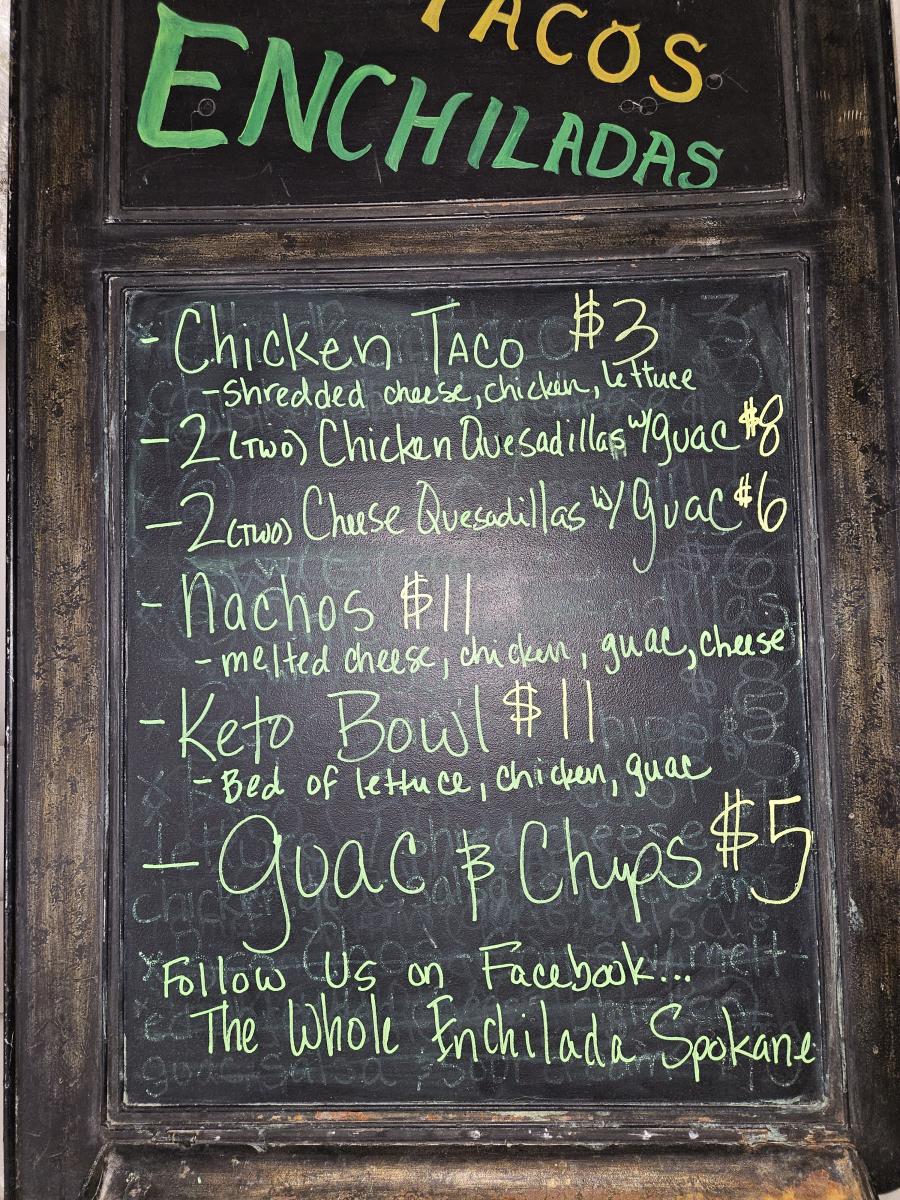 TACOS
ENCHILADAS
- Chicken Taco $3
- Shredded cheese, chicken, lettuce
- 2 (TWO) Chicken Quesadillas w/guac $8
- 2 (TWO) Cheese Quesadillas w/ guac $6
- Nachos $11
- melted cheese, chicken, guac, cheese
- Keto Bowl $11
- Bed of lettuce, chicken, guac
- Guac & Chips $5
Follow Us on Facebook...
The Whole Enchilada Spokane